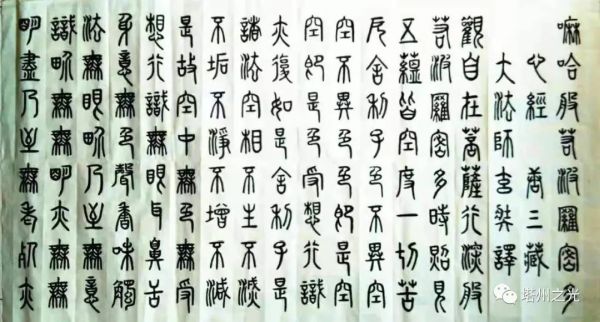 嘛哈般若波羅密多
心經 唐三藏
大法師玄奘譯
觀自在菩薩行深般
若波羅密多時照見
五蘊皆空度一切苦
厄舍利子色不異空
空不異色色即是空
空即是色受想行識
亦復如是舍利子是
諸法空相不生不滅
不垢不淨不增不減
是故空中無色無受
想行識無眼耳鼻舌
身意無色聲香味觸
法無眼界乃至無意
識界無無明亦無無
明盡乃至無老死亦
塔州之光